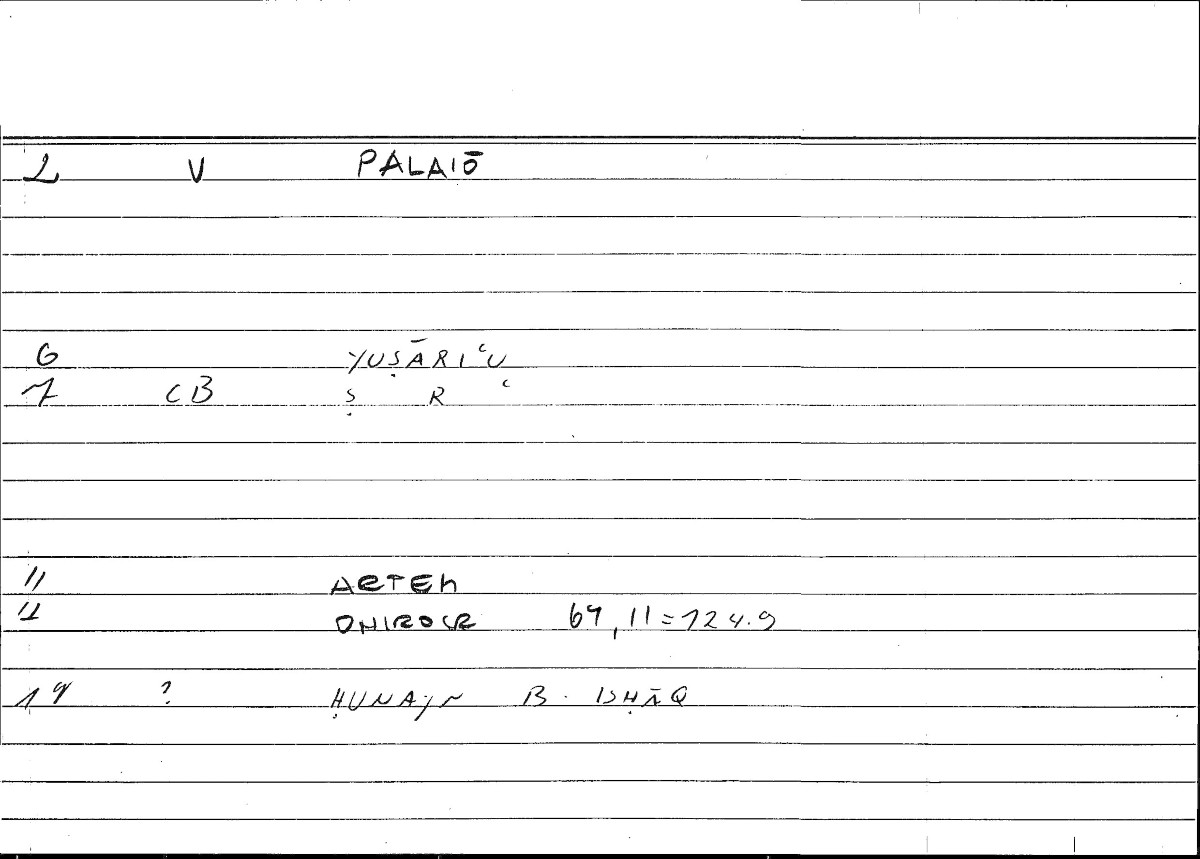 2 V PALAIŌ
6 YUṢĀRIʿU
7 CB Ṣ R ʿ
11 ARTEM
12 ONIROCR 69,11=124.9
14 ? ḤUNAYN B. ISḤĀQ